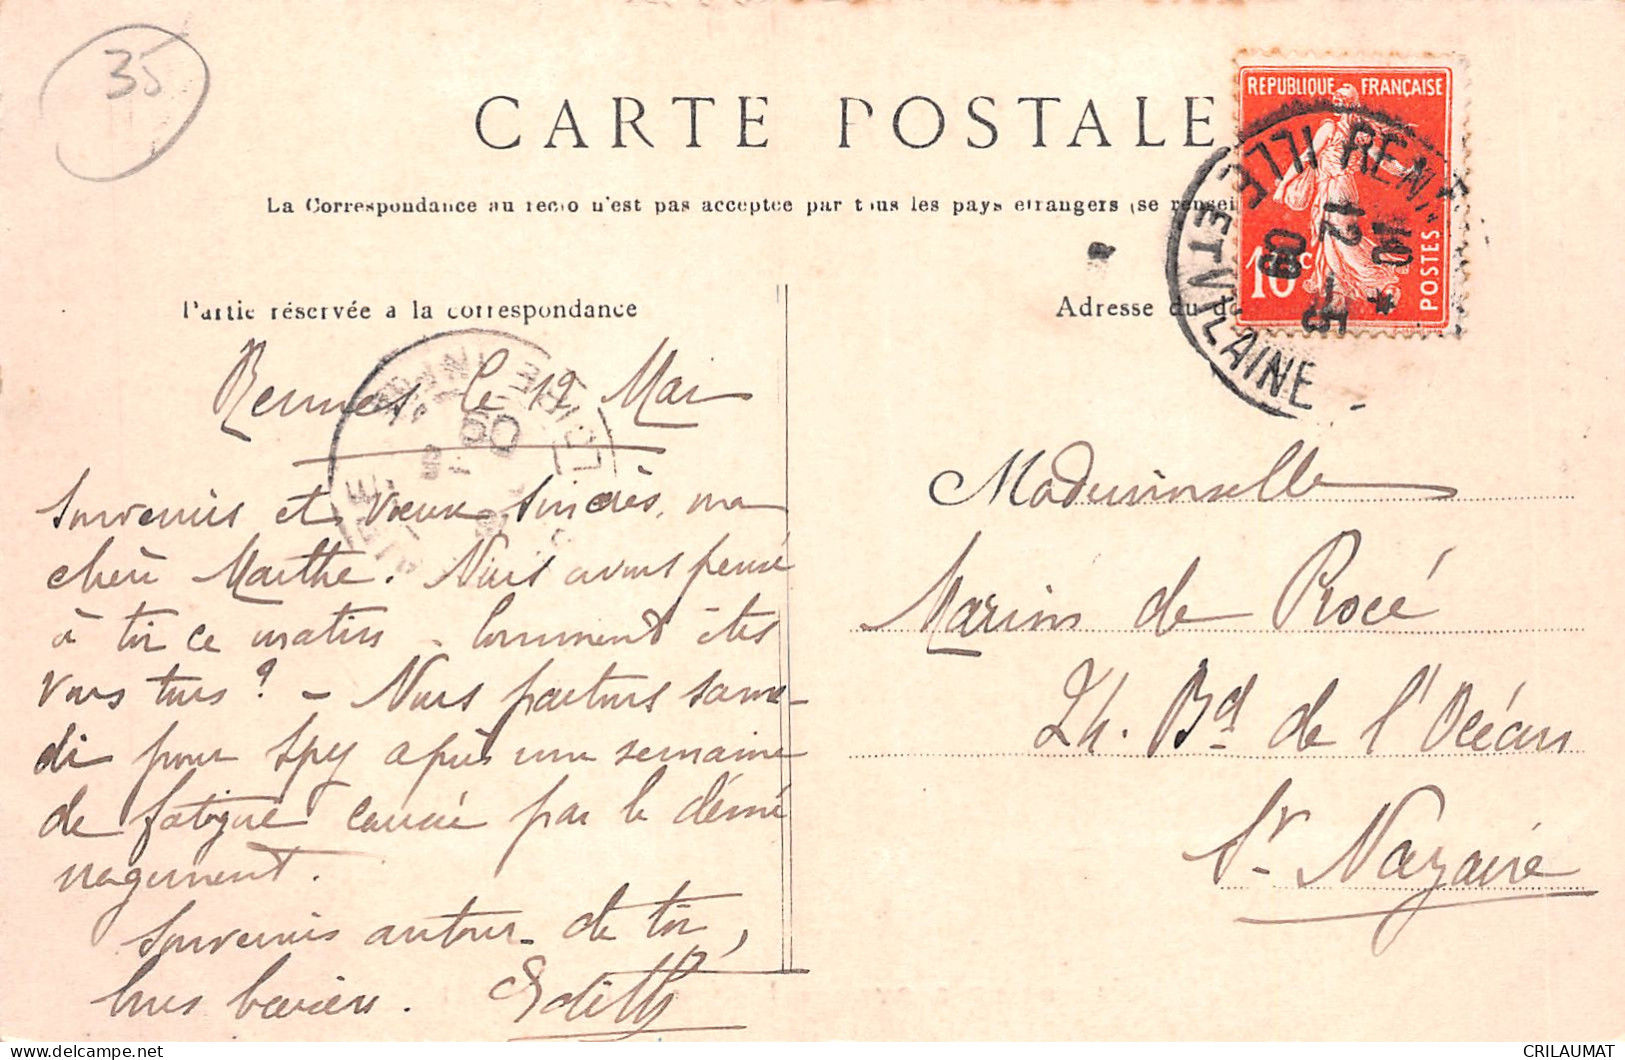 35
CARTE POSTALE
La Correspondance au recto n'est pas acceptée par tous les pays étrangers (se rensei
REPUBLIQUE FRANÇAISE
10c
POSTES
RENNES
ILLE ET VILAINE
10 *
12 -5
09
Partie réservée a la correspondance
Adresse du d
Rennes le 12 Mai
Souvenirs et vœux sincères, ma
chère Marthe. Nous avons pensé
à toi ce matin - Comment êtes
vous tous ? - Nous partons same-
di pour Spy après une semaine
de fatigue causée par le démé
nagement.
Souvenirs autour de toi,
bons baisers. Edith
Mademoiselle
Marion de Procé
24. Bd de l'Océan
St Nazaire
CRILAUMAT